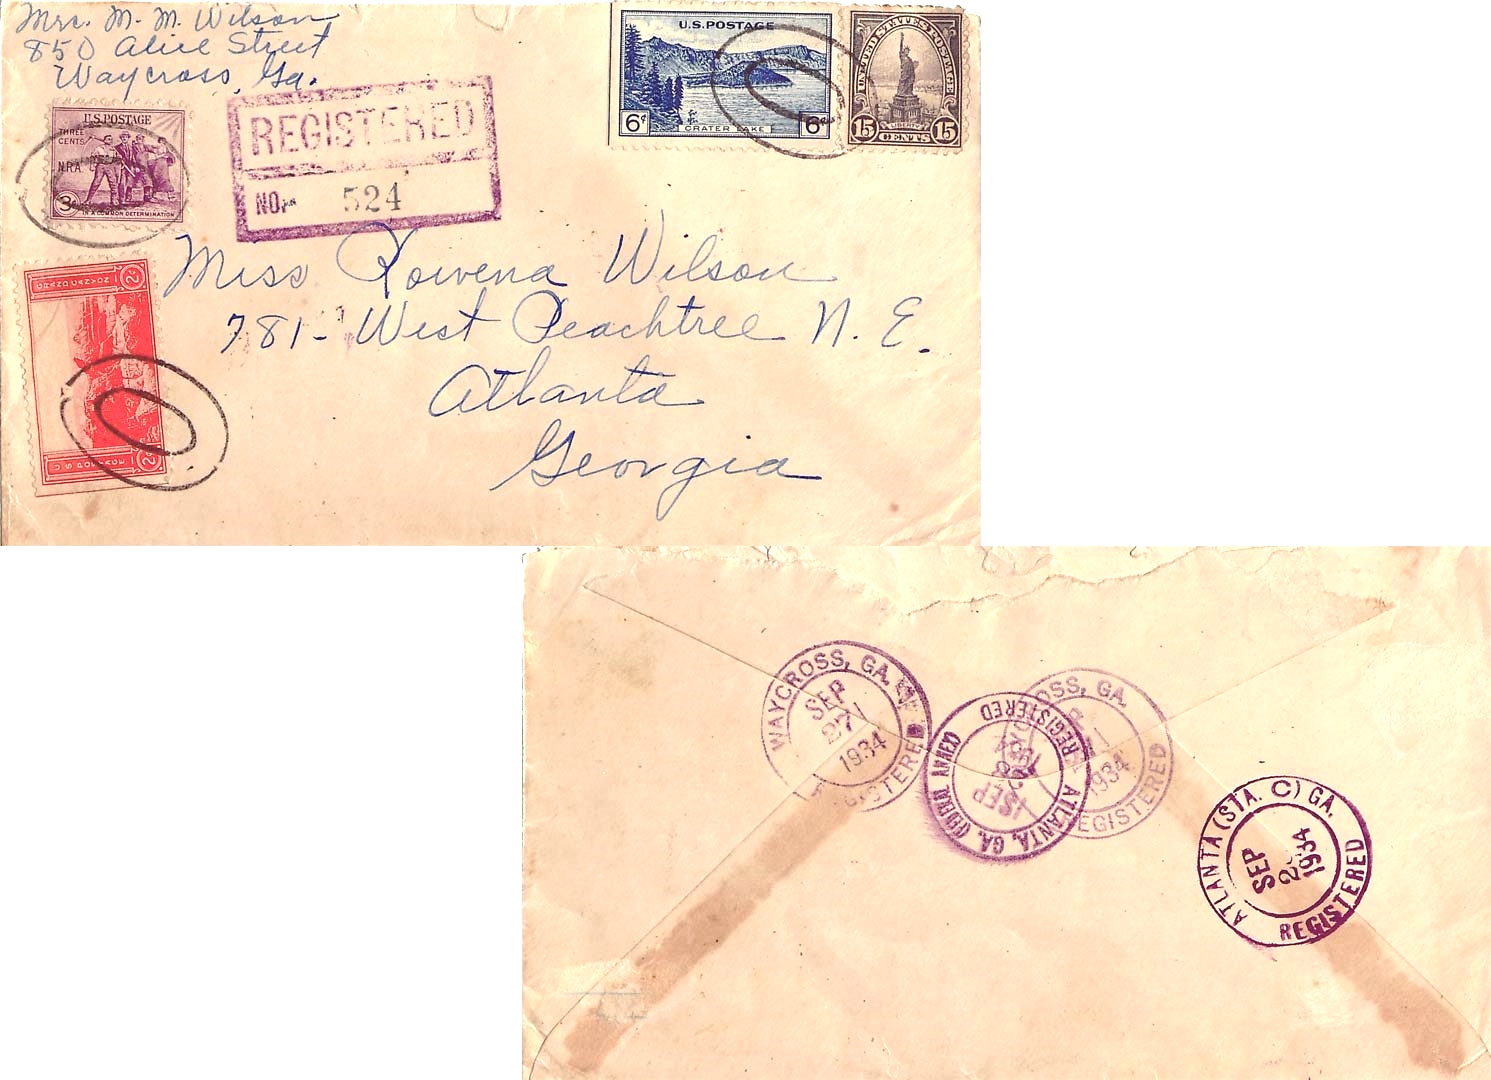 Mrs. M. M. Wilson
850 Alice Street
Waycross, Ga.
U.S. POSTAGE
THREE CENTS
N.R.A.
3¢
IN A COMMON DETERMINATION
REGISTERED
NO. 524
U.S. POSTAGE
6¢ CRATER LAKE 6¢
UNITED STATES POSTAGE
LIBERTY
15 CENTS 15
GRAND CANYON 2¢
U S POSTAGE 2¢
Miss Rowena Wilson
781- West Peachtree N. E.
Atlanta
Georgia
WAYCROSS, GA.
SEP
27
1934
REGISTERED
ATLANTA, GA. (FEDERAL ANNEX)
SEP
28
1934
REGISTERED
OSS, GA.
1934
EGISTERED
ATLANTA (STA. C) GA.
SEP
2
1934
REGISTERED